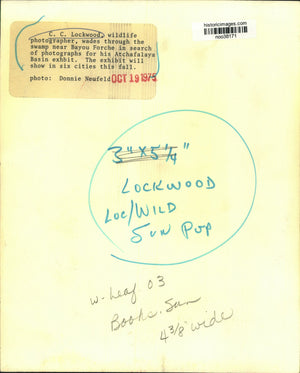 historicimages.com
noo30171
C. C. Lockwood, wildlife
photographer, wades through the
swamp near Bayou Forche in search
of photographs for his Atchafalaya
Basin exhbit. The exhibit will
show in six cities this fall.
photo: Donnie Neufeld OCT 19 1975
3" x 5 1/4"
LOCKWOOD
LOC/WILD
SUN POP
w-Leaf 03
Books-Sun
4 3/8 wide